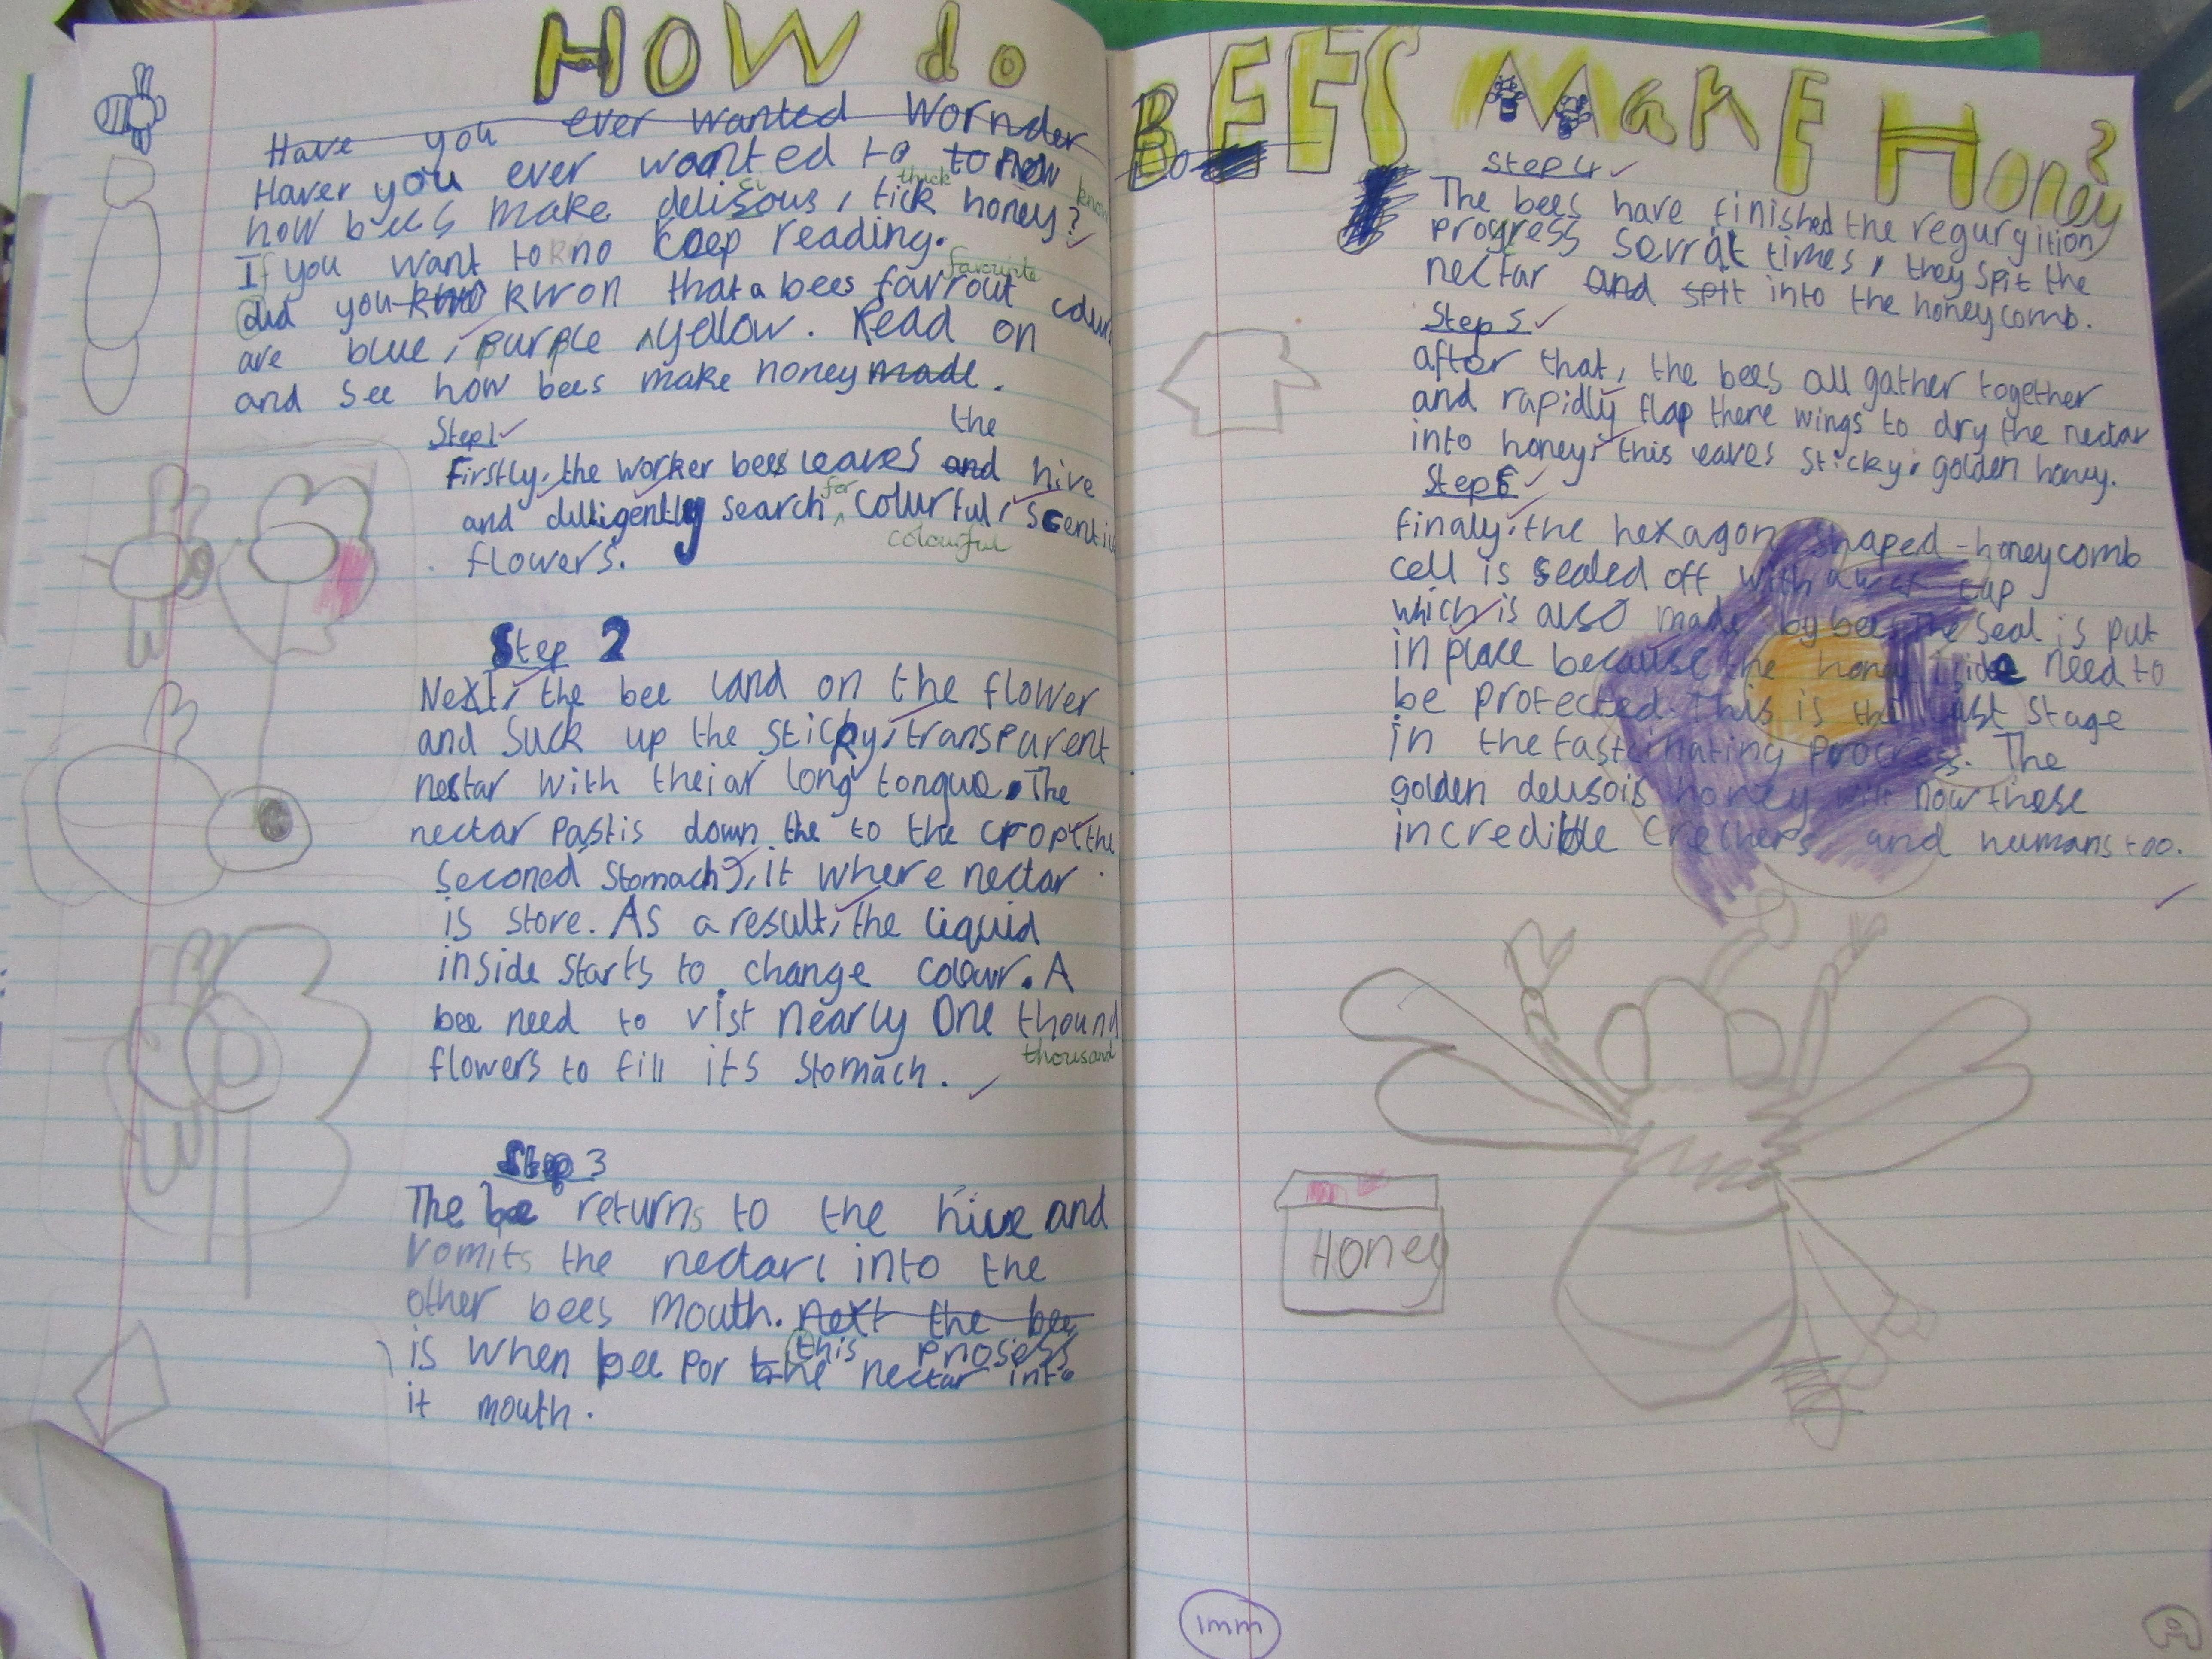 HOW do
BEES MakE Honey?
Have you ever wanted Wornder
Haver you ever wanted to to now know
thick
how bees make delisous, tick honey?
If you want to kno keep reading.
favourite
did you kno kwon that a bees favrout colur
are blue, purple ^ yellow. Read on
and see how bees make honey made.
Step 1
the
Firstly, the worker bees leaves and hive
for
and dilligently search ^ colurful, scentid
colourful
flowers.
Step 2
Next, the bee land on the flower
and suck up the sticky, transparent
nestar with theiar long tongue. The
nectar pastis down the to the crop (the
seconed stomach), it where nectar
is store. As a result, the liquid
inside starts to change colour. A
bee need to vist nearly One thound
thousand
flowers to fill its stomach.
Step 3
The bee returns to the hive and
vomits the nectar, into the
other bees mouth. next the bee
this prosess
is when bee por the nectar into
it mouth.
Step 4
The bees have finished the regurgition
progress serral times, they spit the
nectar and spit into the honeycomb.
Step 5
after that, the bees all gather together
and rapidly flap there wings to dry the nectar
into honey, this leaves sticky, golden honey.
Step 6
Finaly, the hexagon shaped-honeycomb
cell is sealed off with a wax cap
which is also made by bee. The seal is put
in place because the honey side need to
be protected. This is the last stage
in the fastcinating process. The
golden delusois honey will now these
incredible crethers and humans too.
Honey
1mm
A